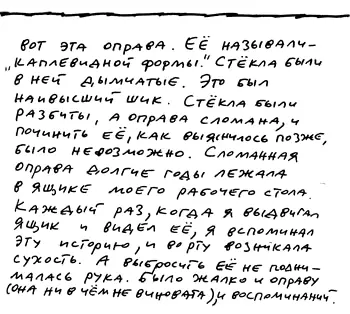 вот эта оправа. Её называли-
„каплевидной формы." Стёкла были
в ней дымчатые. Это был
наивысший шик. Стёкла были
разбиты, а оправа сломана, и
починить её, как выяснилось позже,
было невозможно. Сломанная
оправа долгие годы лежала
в ящике моего рабочего стола.
Каждый раз, когда я выдвигал
ящик и видел её, я вспоминал
эту историю, и во рту возникала
сухость. А выбросить её не подни-
малась рука. Было жалко и оправу
(она ни в чём не виновата), и воспоминаний.